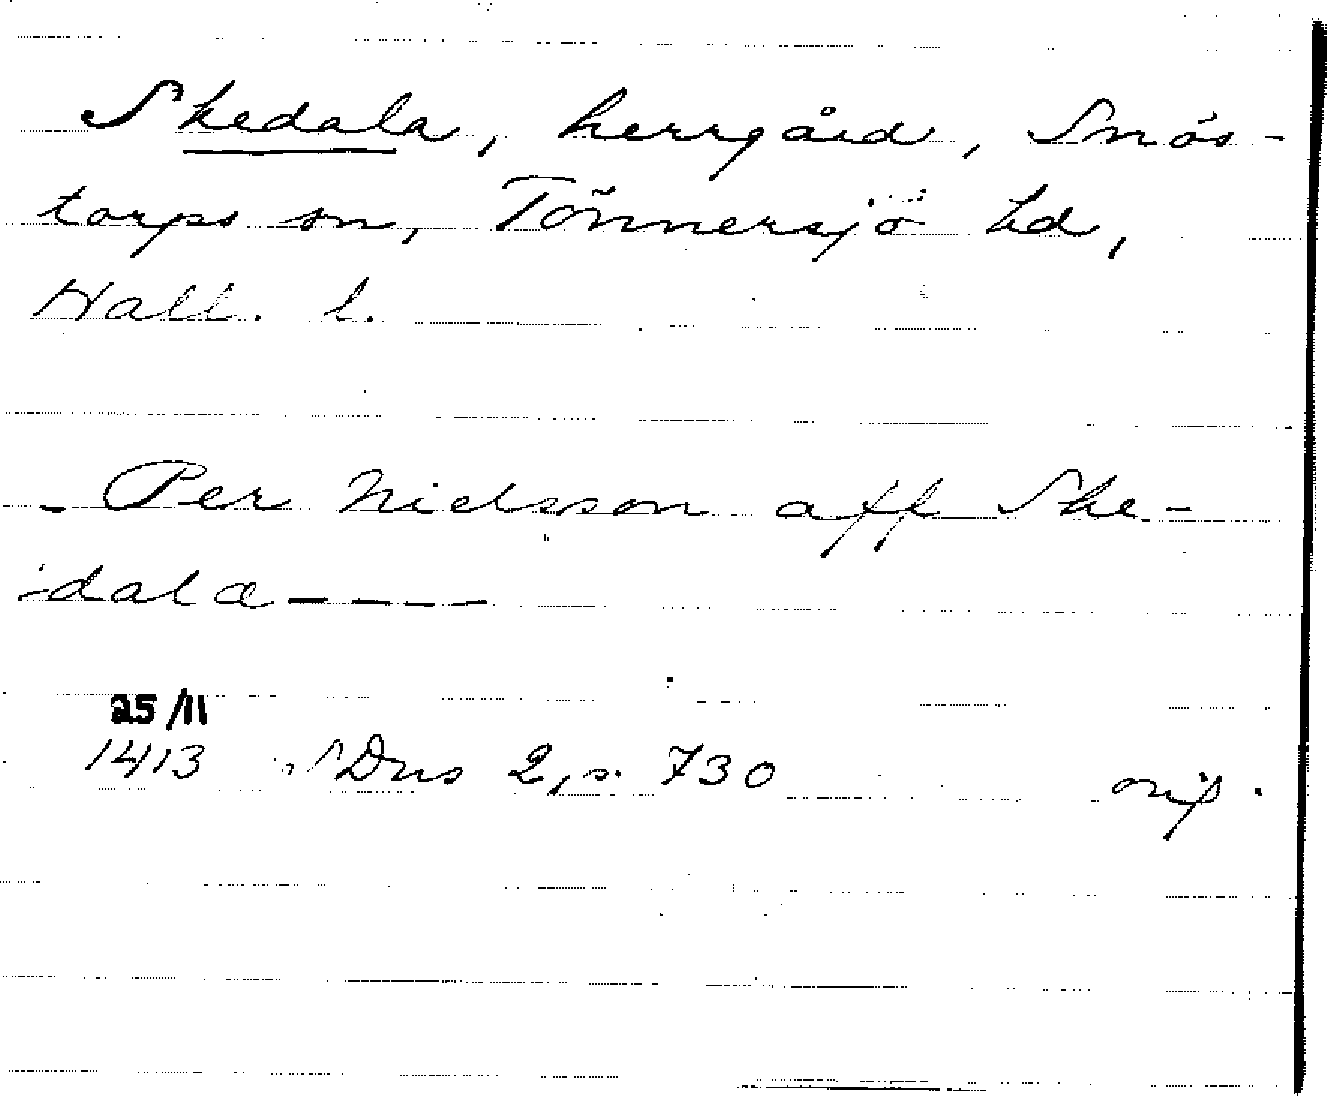 Skedala, herrgård, Snös-
torps sn, Tönnersjö hd,
Hall. l.
- Per Nielsson aff Ske-
dala - - - -
25/11
1413 SDns 2, s. 730